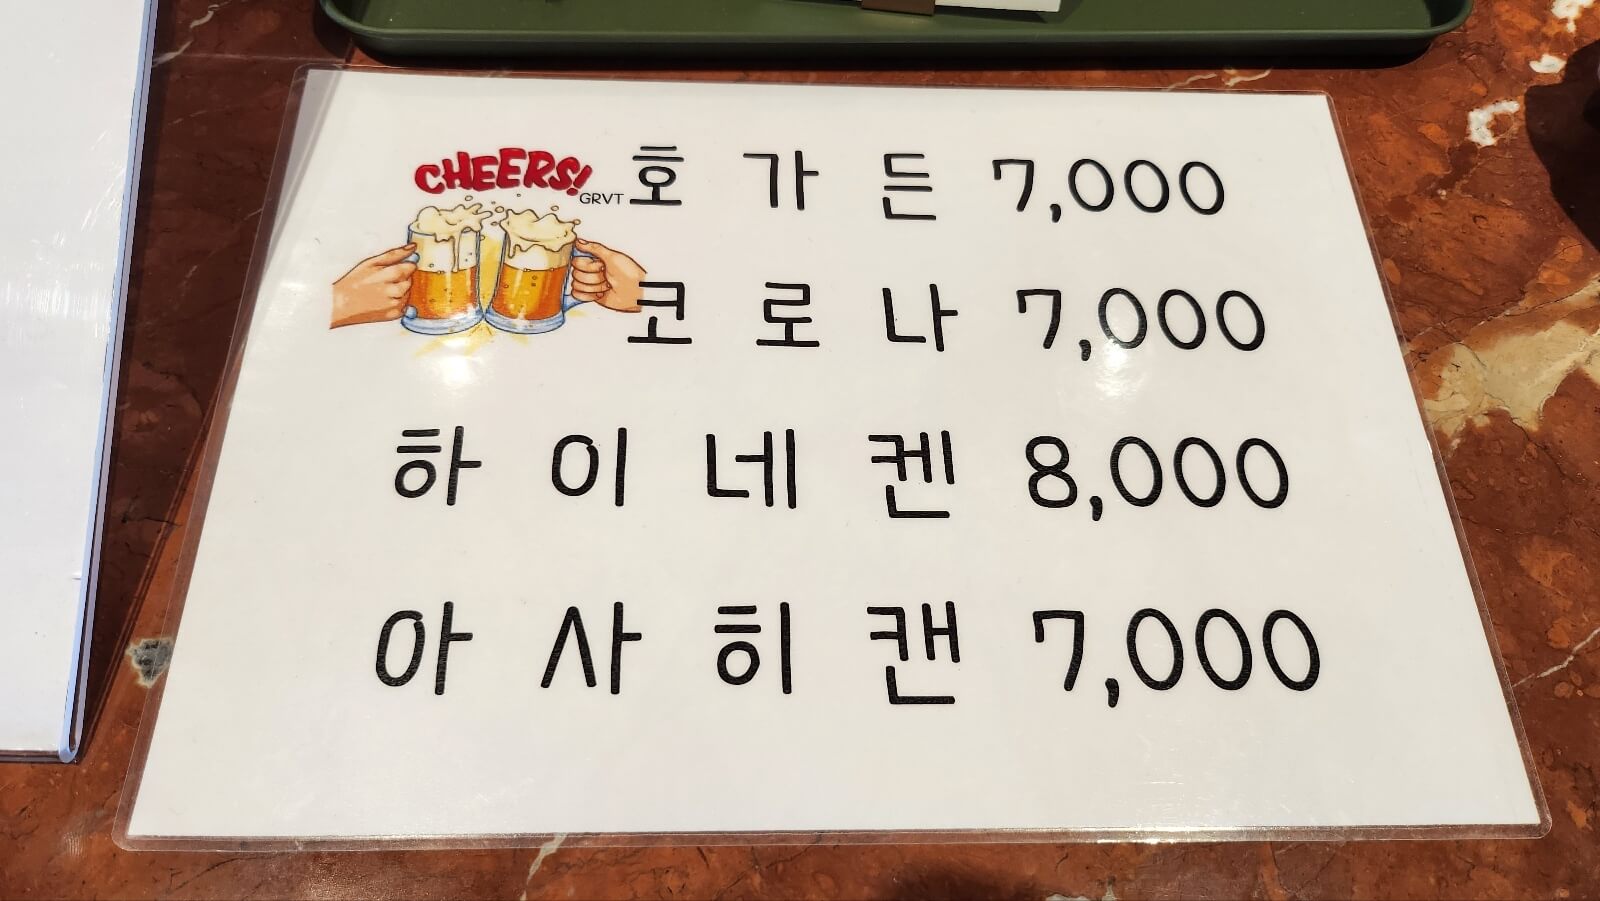 CHEERS!
GRVT
호 가 든 7,000
코 로 나 7,000
하 이 네 켄 8,000
아 사 히 캔 7,000